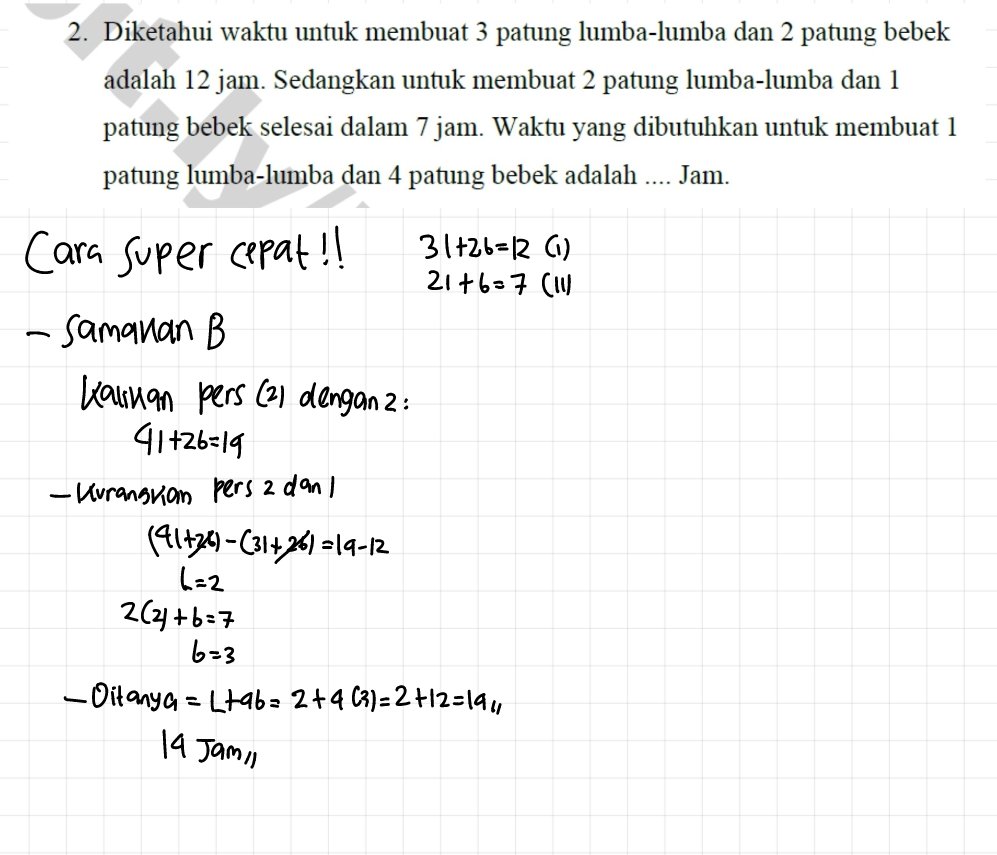 2. Diketahui waktu untuk membuat 3 patung lumba-lumba dan 2 patung bebek
adalah 12 jam. Sedangkan untuk membuat 2 patung lumba-lumba dan 1
patung bebek selesai dalam 7 jam. Waktu yang dibutuhkan untuk membuat 1
patung lumba-lumba dan 4 patung bebek adalah .... Jam.
Cara super cepat!!
3l+2b=12 (1)
2l+b=7 (11)
- Samakan B
kalikan pers (2) dengan 2:
4l+2b=14
- Kurangkan pers 2 dan 1
(4l+2b)-(3l+2b)=14-12
L=2
2(2)+b=7
b=3
- Ditanya = L+4b= 2+4(3)=2+12=14//
14 Jam//